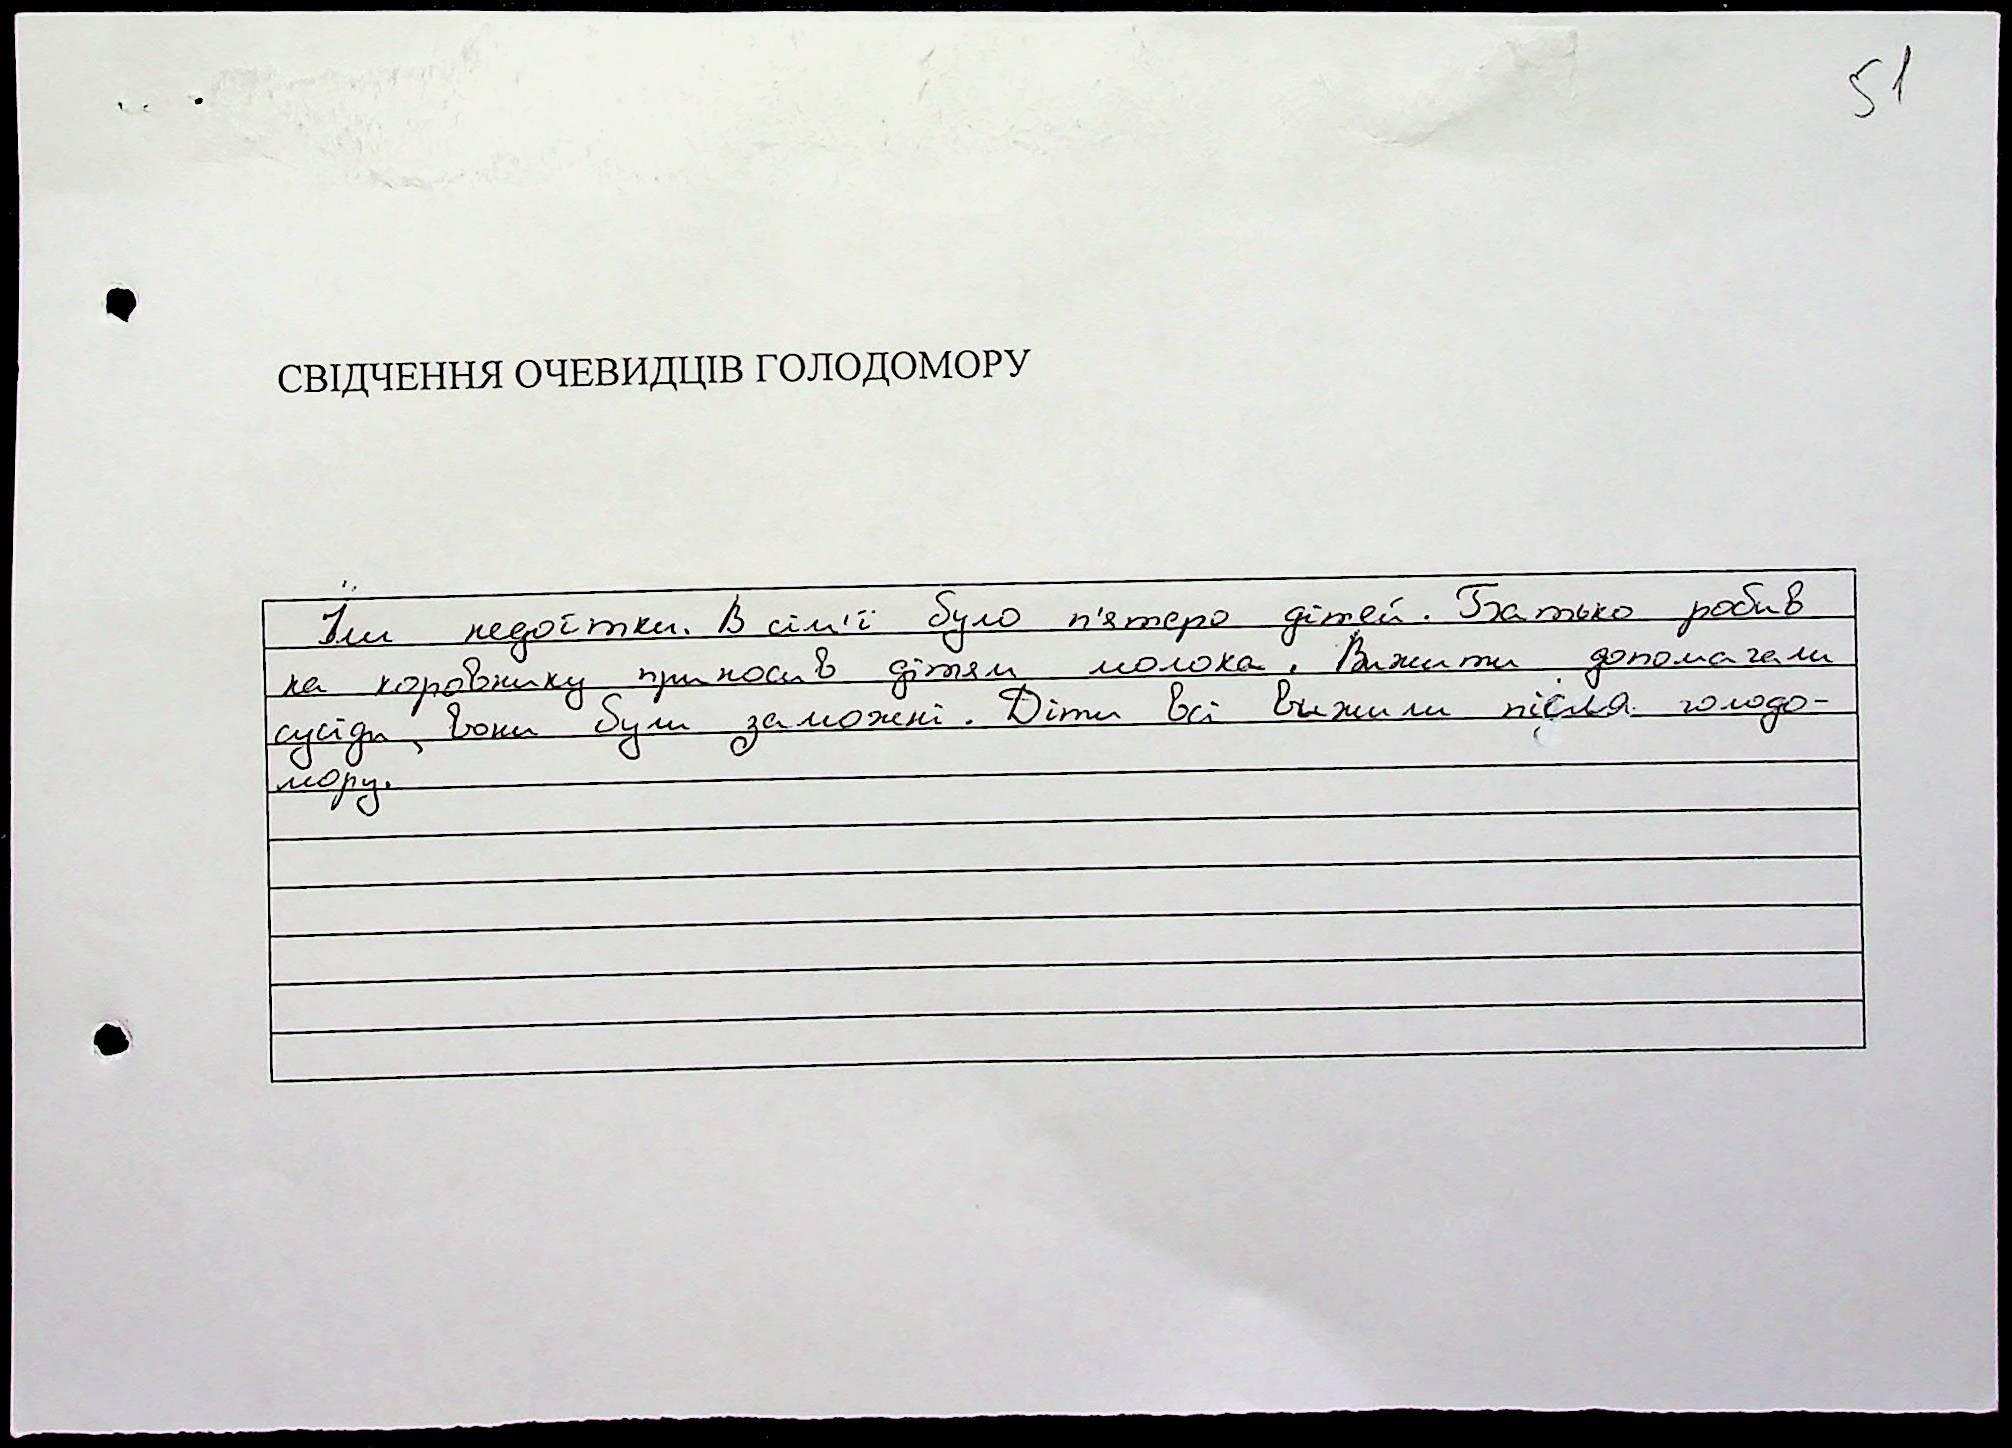 51
СВІДЧЕННЯ ОЧЕВИДЦІВ ГОЛОДОМОРУ
Їли недоїтки. В сім'ї було п'ятеро дітей. Батько робив
на коровнику приносив дітям молока. Вижити допомагали
сусіди, вони були заможні. Діти всі вижили після голодо-
мору.